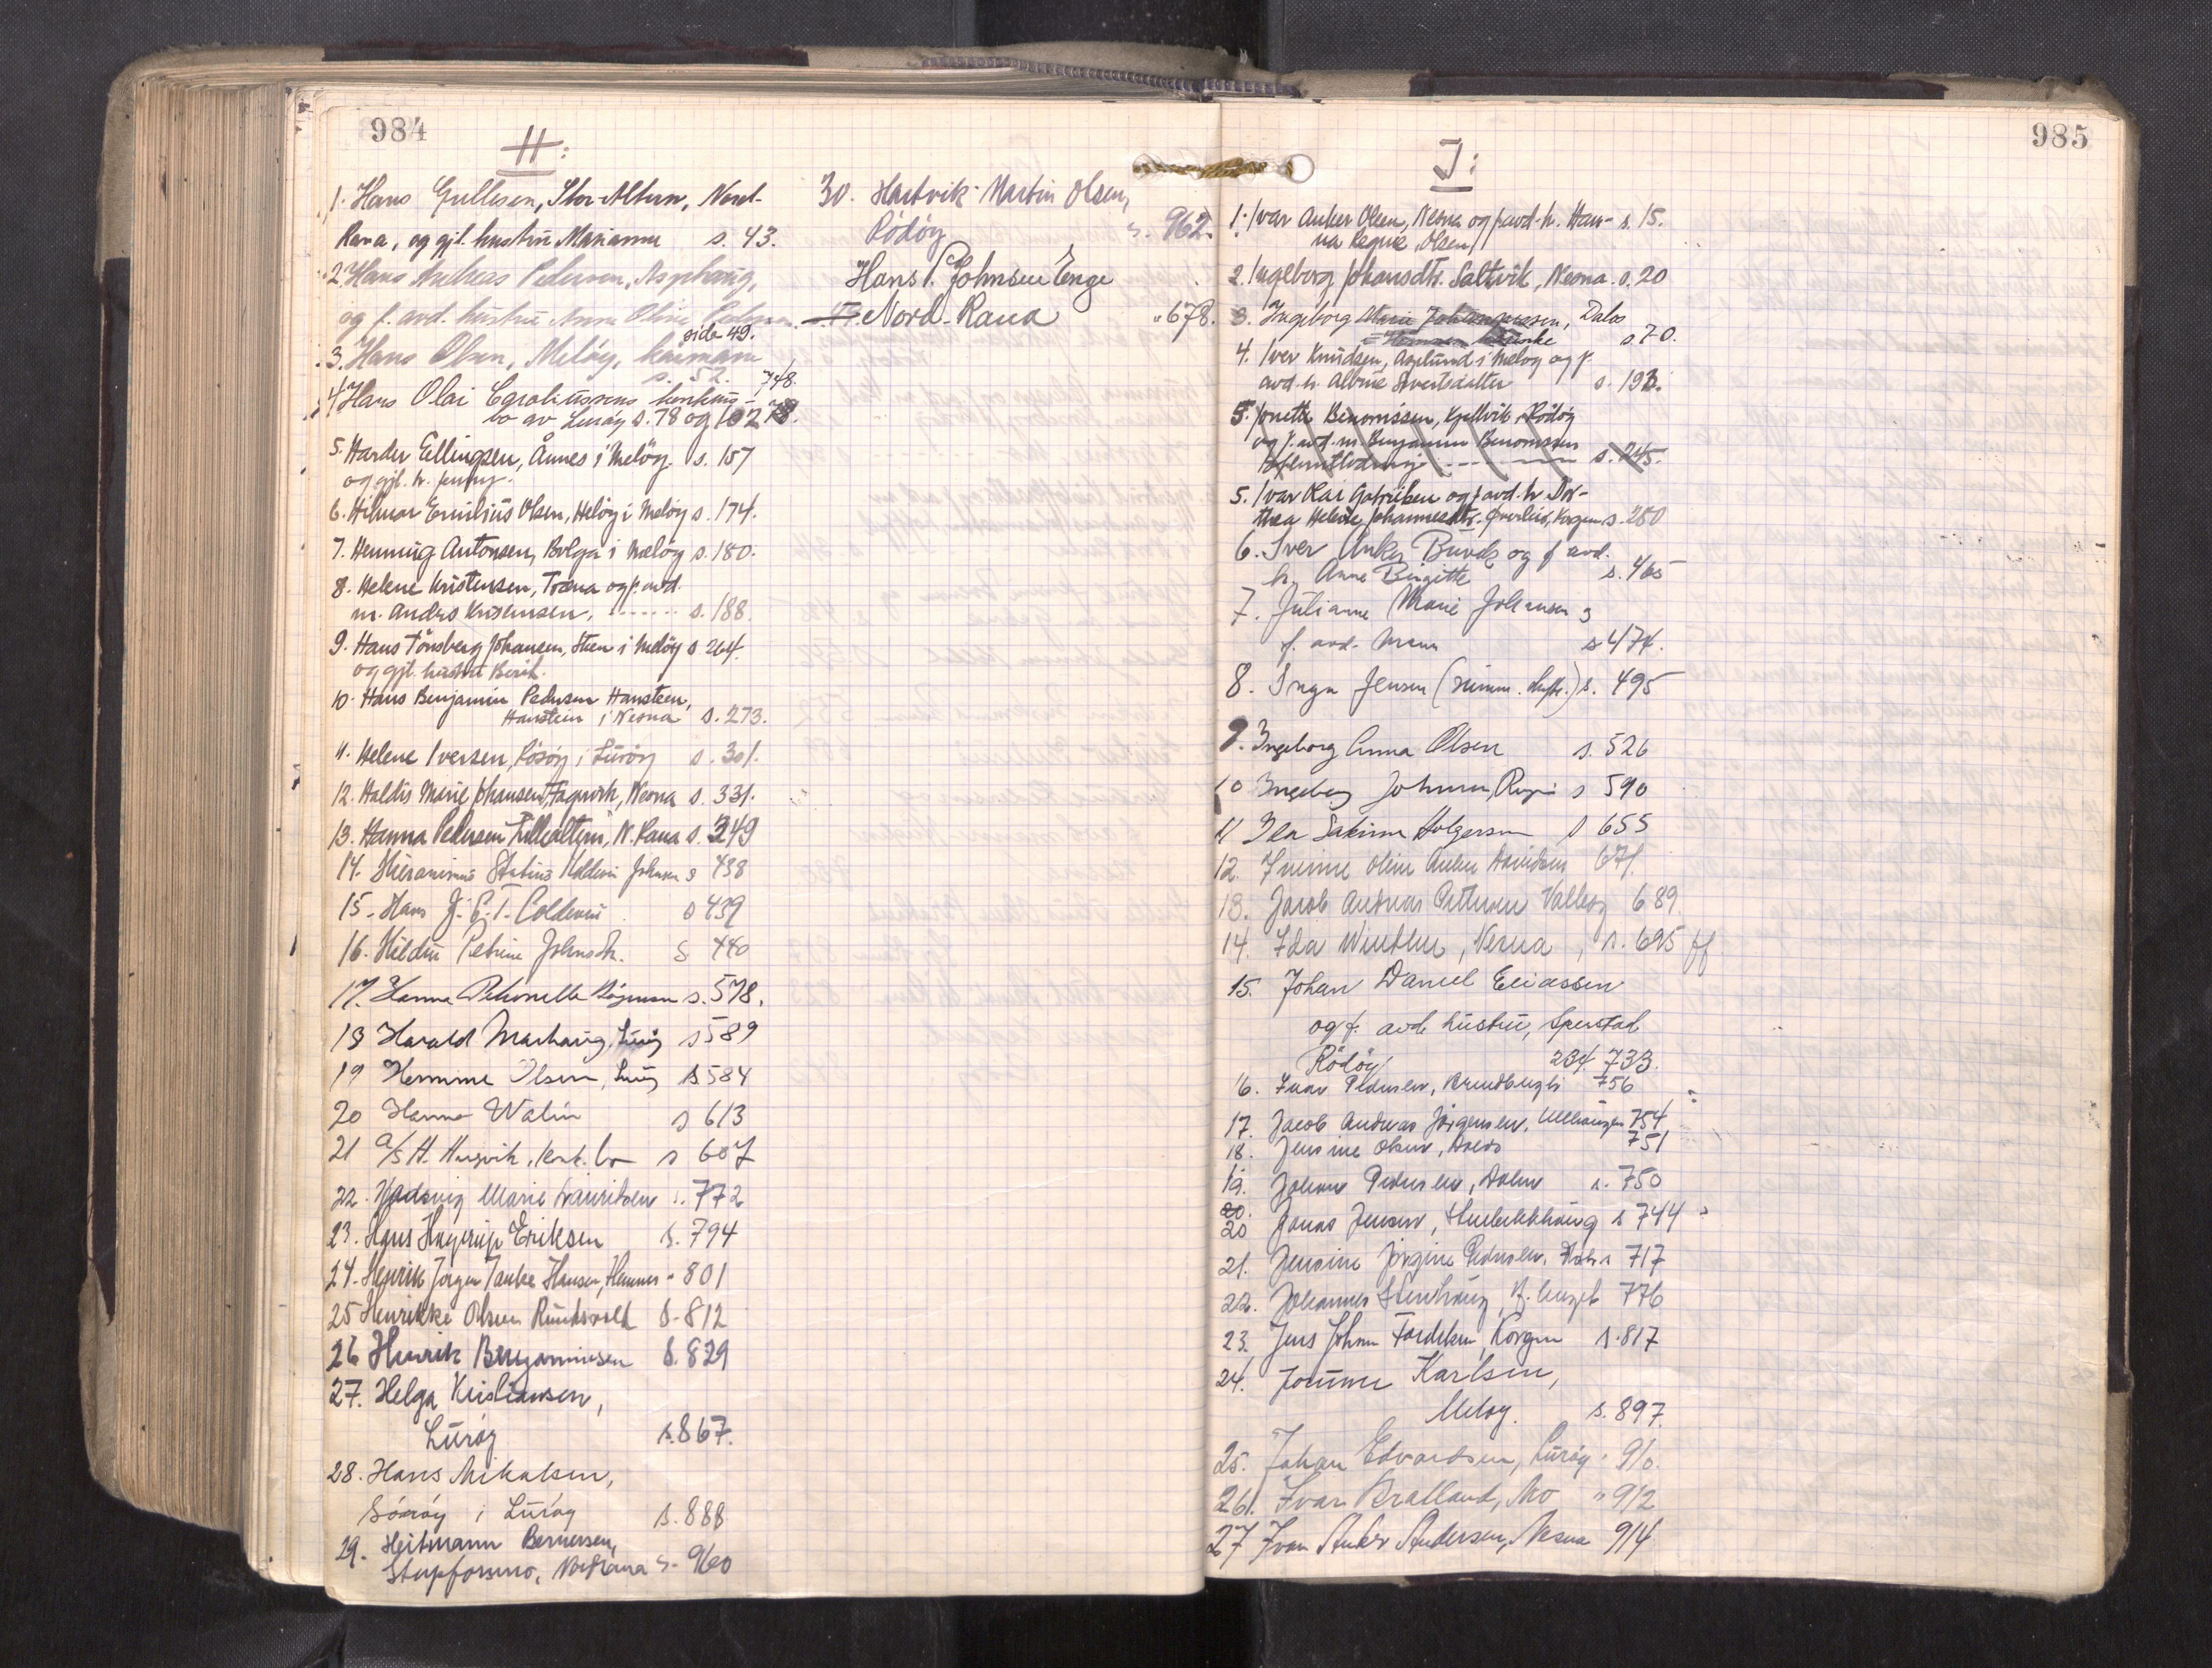 984
H:
1. Hans Gullesen, Stor-Alteren, Nord-
Rana, og gjl. hustru Marianne s. 43.
2. Hans Andreas Pedersen, Asphaug,
og f. avd. hustru Anne Oline Pedersen
side 49.
3. Hans Olsen, Meløy, kårmann
s. 52.
4. Hans Olai Caroliussens konkurs- 748.
bo av Lurøy s. 78 og 102
5. Harder Ellingsen, Ånnes i Meløy. s. 157
og gjl. h. Jenny.
6. Hilmar Emilius Olsen, Meløy i Meløy s. 174.
7. Henning Antonsen, Bolga i Meløy s. 180.
8. Helene Kristensen, Træna og f. avd.
m. Andreas Kristensen, ------ s. 188.
9. Hans Tönsberg Johansen, Steen i Meløy s. 264.
og gjl. hustru Berit.
10. Hans Benjamin Pedersen Hansteen,
Hanstein i Nesna s. 273.
11. Helene Iversen, Rösöy i Lurøy s. 301.
12. Haldis Marie Johansen, Fagervik, Nesna s. 331.
13. Hanna Pedersen Lillealteren, N. Rana s. 349
14. Hieronimus Statius Coldevin Johnsen s 438
15. Hans J. C. T. Coldevin s 439
16. Hildur Petrine Johnsdtr. s 440
17. Hanna Petronelle s. 578.
18 Harald Marhaug, Lurøy s 589
19 Hermine Olsen, Lurøy s. 584
20 Hanna Walin s 613
21 A/S H. Husvik, konk. bo s 607
22. Hedvig Marie Lauritsen s. 772
23. Hans Hagerup Eriksen s. 794
24. Henrik Jørgen Tanke Hansen, Hemnes " 801
25 Henrikke Olsen Rundsvold s. 812
26 Henrik Benjaminsen s. 829
27. Helga Kristiansen,
Lurøy s. 867.
28. Hans Mikalsen,
Sörøy i Lurøy s. 888
29. Heitmann Bernersen,
Stupforsmo, Nord Rana s. 960
30. Hartvik Martin Olsen,
Rödöy s. 962.
Hans P. Johnsen Enge
Nord-Rana " 678.
985
I:
1. Ivar Anker Olsen, Nesna og f. avd. h. Han- s. 15.
na Regine Olsen
2. Ingeborg Johansdtr. Saltvik, Nesna. s. 20
3. Ingeborg Marie Johannessen, Dalos
s 70.
4. Iver Knudsen, Asplund i Meløy og f.
avd. h. Albine Sivertsdatter s. 193.
5. Jonette Benonissen, Gjellvik, Rödöy
og f. avd. m. Benjamin Benonissen
s. 245.
5. Ivar Kai Gabrielsen og f. avd. h. Dor-
thea Helene Johannesdtr. Øverlid, Korgen s. 280
6. Iver Anker Bunde og f avd.
h. Anne Birgitte s. 465
7. Juliane Marie Johansen og
f. avd. mann s 474.
8. Inga Jensen (umm. skifte.) s. 495
9. Ingeborg Anna Olsen s. 526
10 Ingeborg Johnsen, s 590
11 Ida Sakrine Holgersen s 655
12. Oline Anker Davidsen 671.
13. Jacob Andreas Pettersen Valley 689.
14. Ida Winther, Nesna, s. 695 ff
15. Johan Daniel Eliassen
og f. avd. hustru, Sperstad
Rödöy 234. 733.
16. Ivar Pedersen, 756
17. Jacob Andreas Jørgensen, Ulhaugen 754
18. Jensine Olsen, 751
19. Johan Pedersen, Dalen s. 750
20.
20 Jonas Jensen, s 744
21. Jensine Jørgine Pedersen, 717
22. Johannes Stenhaug, 776
23. Jens Johan Fordelsen, Korgen s. 817
24. Karlsen,
Meløy. s. 897.
25. Johan Edvardsen, Lurøy " 910.
26. Ivar Bratland, Mo " 912
27 Ivar Anker Andersen, Nesna 914